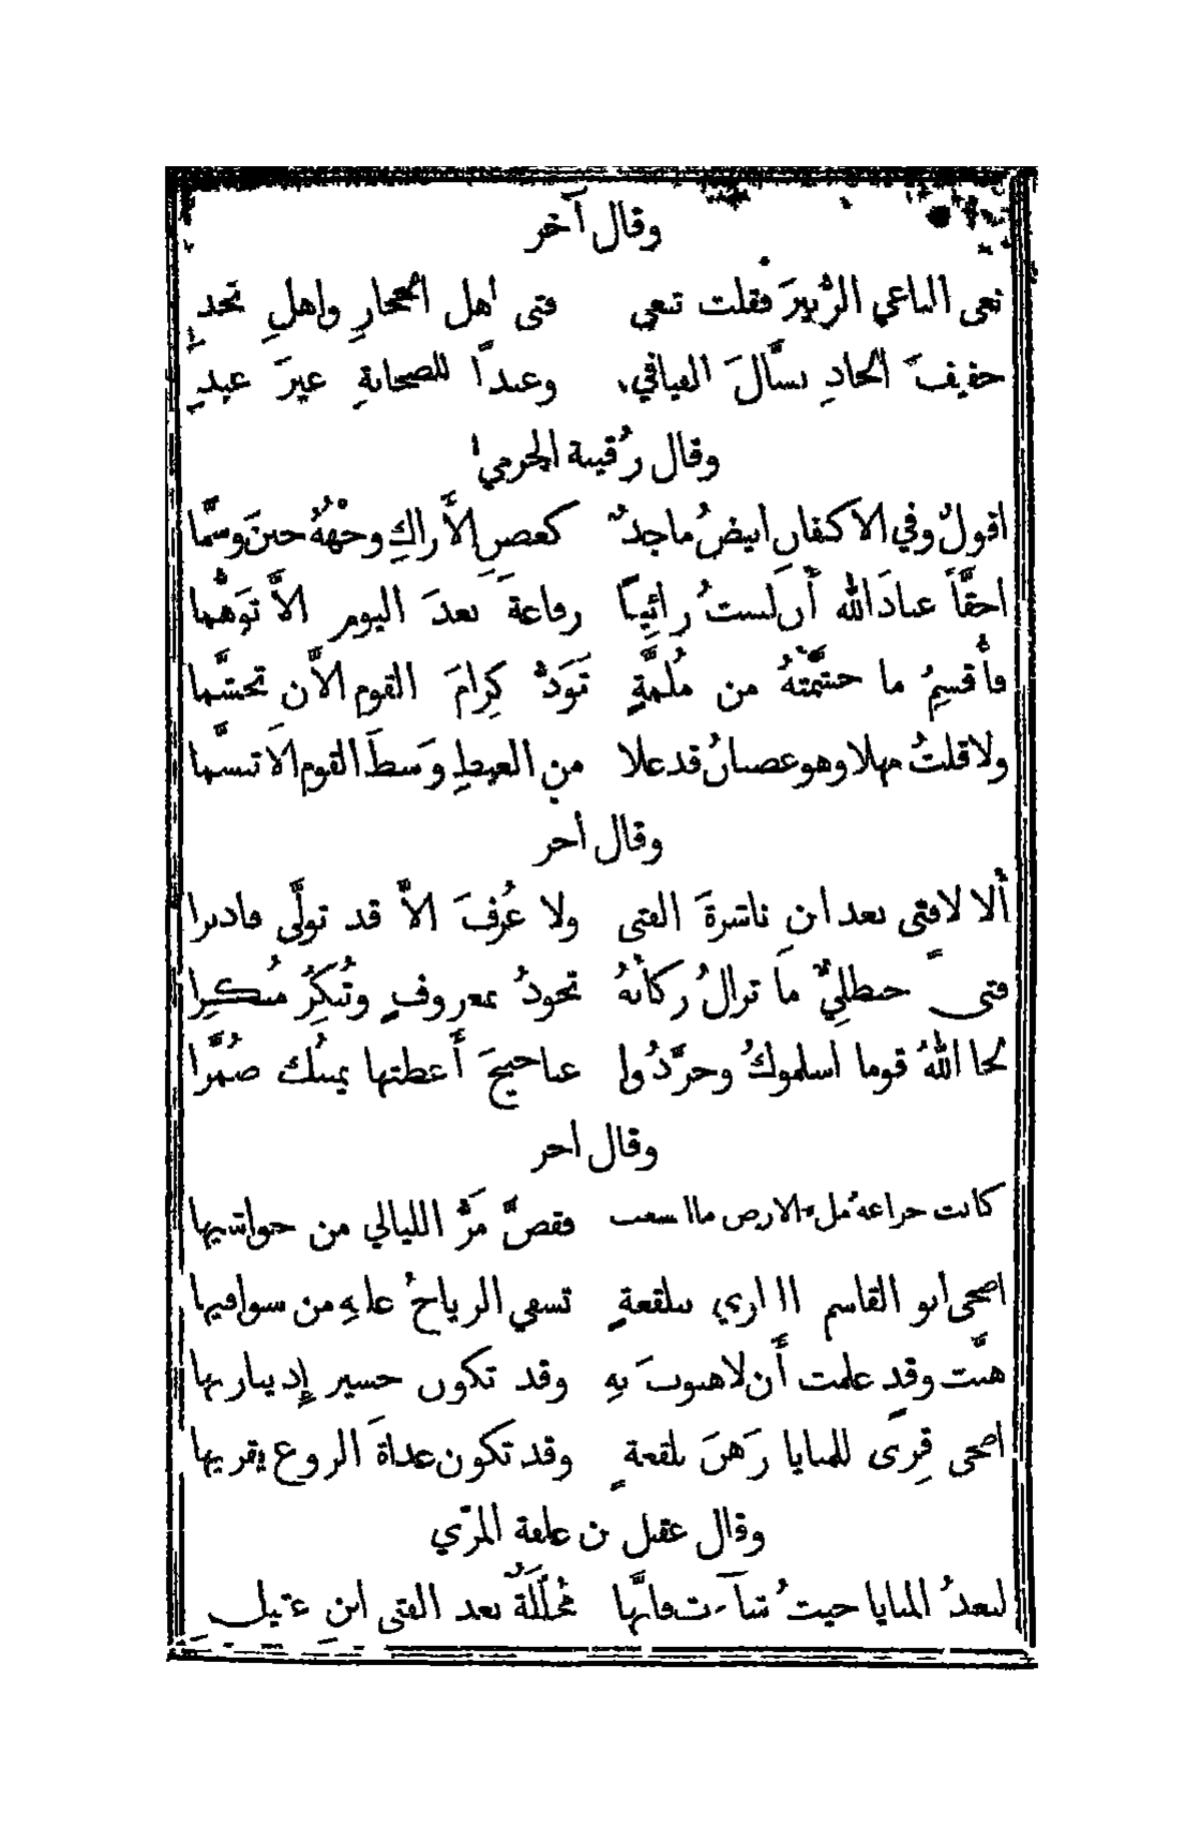 وقال آخر
نعى الناعي الزُّبيرَ فقلت تنعي فتى اهل الحجازِ واهلِ نجدِ
خفيفَ الحاذِ نسَّالَ الفيافي وعبداً للصحابةِ غيرَ عبدِ
وقال رُقيبة الجرمي
اقولُ وفي الاكفانِ ابيضُ ماجدٌ كغصنِ الأَراكِ وجْههُ حينَ وسَّما
احقَّاً عبادَ الله أَن لستُ رائِياً رفاعةَ بعدَ اليوم الاَّ توَهُّما
فأُقسِمُ ما جشَّمتهُ من مُلمَّةٍ تَوَدُّ كِرامَ القوم الاَّن تجشَّما
ولا قلتُ مهلا وهو غضبانُ قد غلا من الغيظِ وَسطَ القوم الاَ تبسَّما
وقال آخر
أَلا لا فتى بعد ابنِ ناشرةَ الفتى ولا عُرفَ الاَّ قد تولَّى فادبرا
فتى حنظليٌّ ما تزالُ ركابُهُ تجودُ بمعروفٍ وتُنكِرُ مُنكِرا
لحا اللهُ قوما اسلموكُ وجرَّدُوا عناجيجَ أَعطتها يمينُك ضُمَّرا
وقال آخر
كانت خزاعةُ ملءَ الارض ما اتسعت فقصَّ مَرُّ الليالي من حواشيها
اضحى ابو القاسم الثاوي ببلقعةٍ تسفي الرياحُ عليهِ من سوافيها
هبَّت وقد علمت أَن لا هبوبَ بهِ وقد تكون حسير إِذ يباريها
اضحى قِرىً للمنايا رَهنَ بلقعةٍ وقد تكون غداةَ الروع يقريها
وقال عقيل بن علفة المرّي
لتغدُ المنايا حيثُ شآءت فانَّها مُحلَّلَةٌ بعد الفتى ابنِ عقيلِ